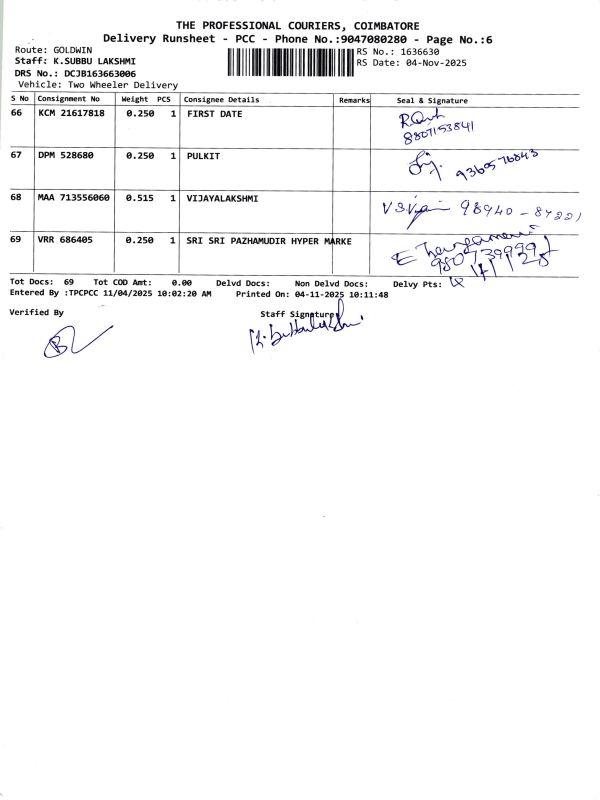 THE PROFESSIONAL COURIERS, COIMBATORE
Delivery Runsheet - PCC - Phone No.:9047080280 - Page No.:6
Route: GOLDWIN
Staff: K.SUBBU LAKSHMI
DRS No.: DCJB163663006
Vehicle: Two Wheeler Delivery
RS No.: 1636630
RS Date: 04-Nov-2025
S No Consignment No Weight PCS Consignee Details Remarks Seal & Signature
66 KCM 21617818 0.250 1 FIRST DATE
8807153841
67 DPM 528680 0.250 1 PULKIT
68 MAA 713556060 0.515 1 VIJAYALAKSHMI
98940 -
69 VRR 686405 0.250 1 SRI SRI PAZHAMUDIR HYPER MARKE
Tot Docs: 69 Tot COD Amt: 0.00 Delvd Docs: Non Delvd Docs: Delvy Pts:
Entered By :TPCPCC 11/04/2025 10:02:20 AM Printed On: 04-11-2025 10:11:48
Verified By Staff Signature